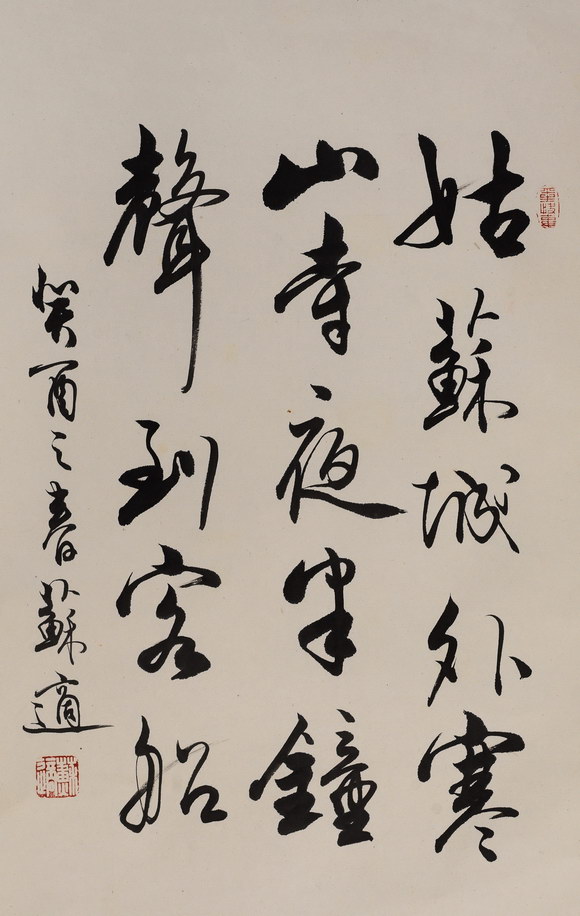 姑蘇城外寒
山寺夜半鐘
聲到客船
癸酉之春蘇適